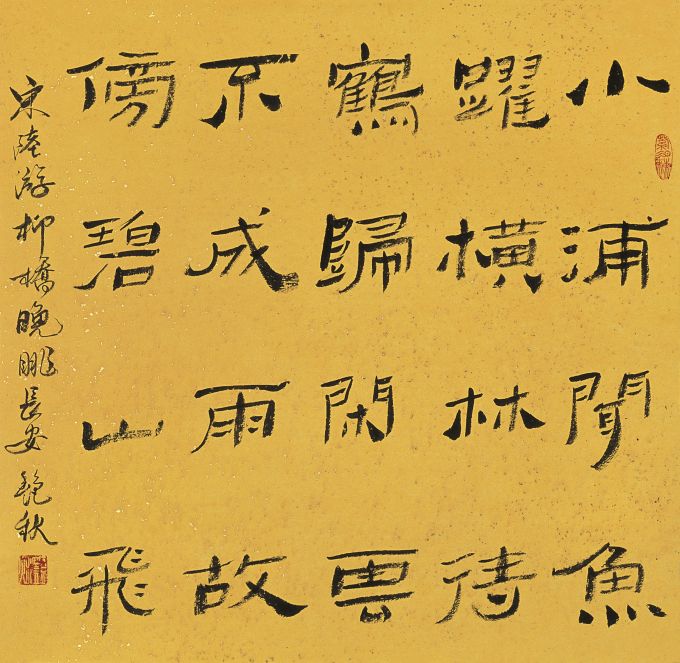 小浦聞魚
躍橫林待
鶴歸閑雲
不成雨故
傍碧山飛
宋陸游柳橋晚眺長安 秋